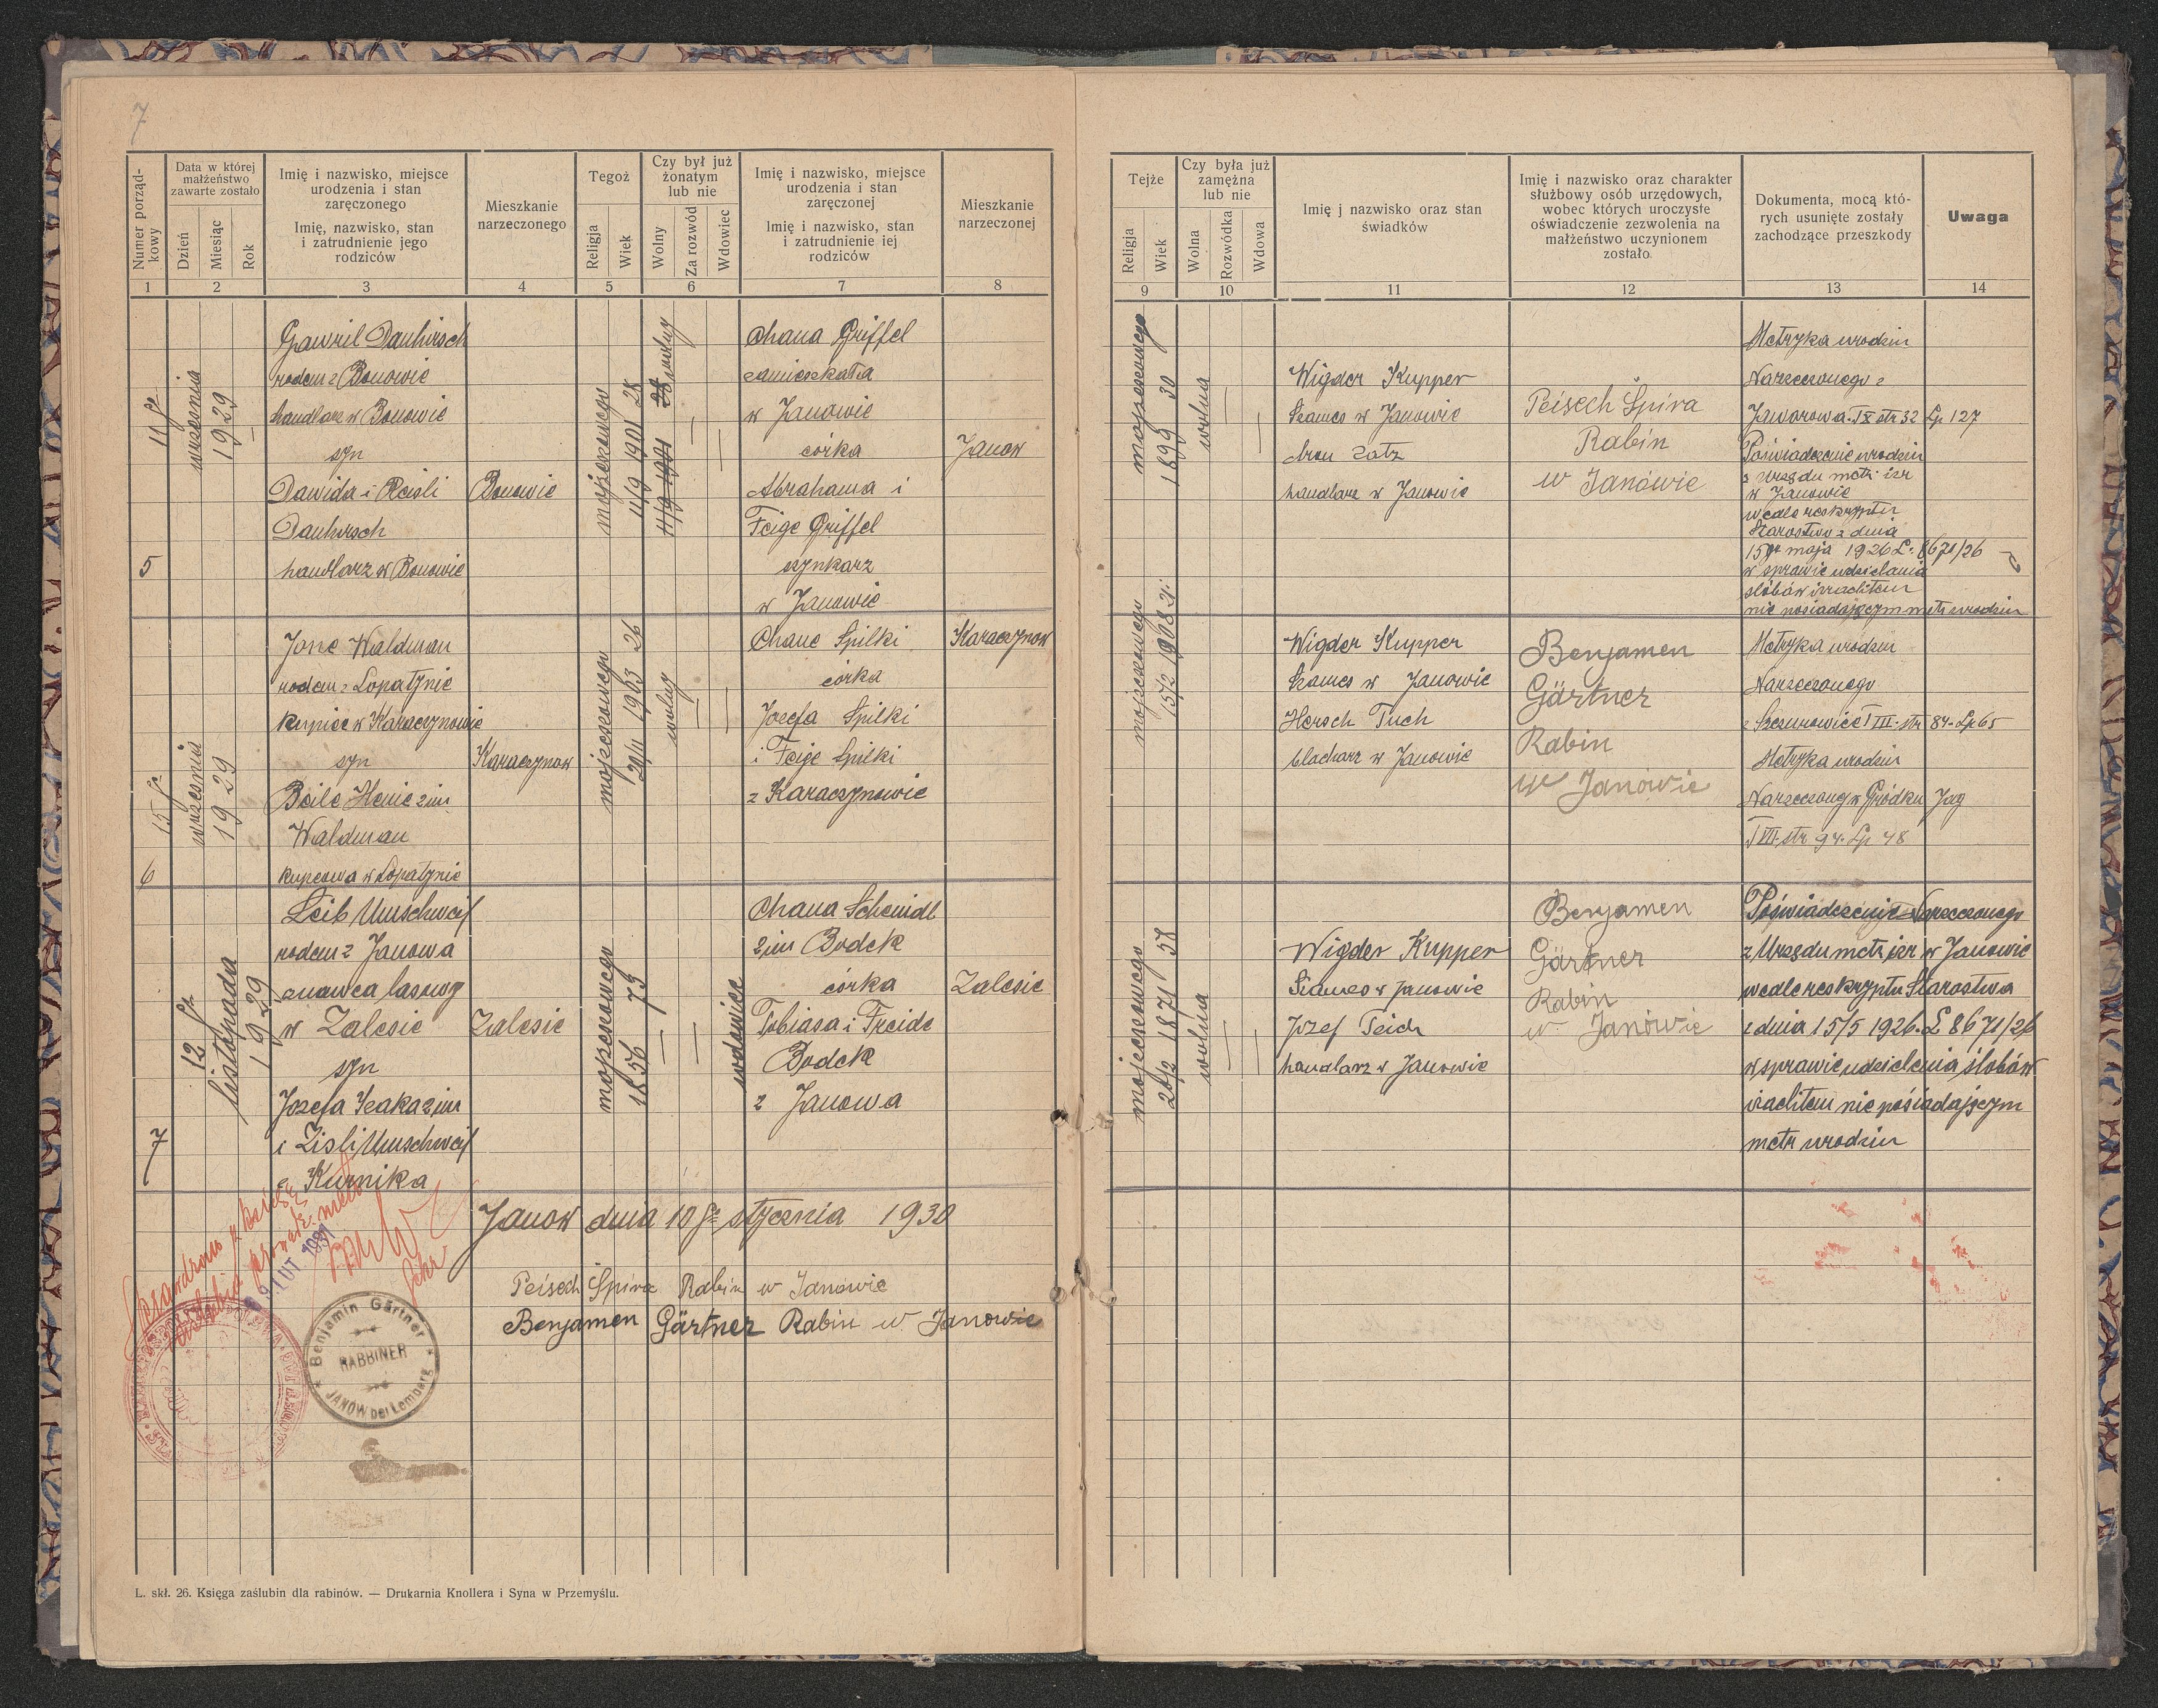 7
Numer porządkowy
Data w której małżeństwo zawarte zostało
Dzień
Miesiąc
Rok
Imię i nazwisko, miejsce urodzenia i stan zaręczonego
Imię, nazwisko, stan i zatrudnienie jego rodziców
Mieszkanie narzeczonego
Tegoż
Religja
Wiek
Czy był już żonatym lub nie
Wolny
Za rozwód
Wdowiec
Imię i nazwisko, miejsce urodzenia i stan zaręczonej
Imię i nazwisko, stan i zatrudnienie iej rodziców
Mieszkanie narzeczonej
1 2 3 4 5 6 7 8
5
11go
września
1929
Gawril Dauhirsch
rodem z Bonowie
handlarz w Bonowie
syn
Dawida i Reisli
Dauhirsch
handlarz w Bonowie
Bonowie
mojżeszowego
11/9 1901 28
wolny
Chana Griffel
zamieszkała
w Janowie
córka
Abrahama i
Feige Griffel
szynkarz
w Janowie
Janow
6
15go
września
1929
Jone Waldman
rodem z Lopatynie
kupiec w Karaczynowie
syn
Beile Henie zim
Waldman
kupcowa w Lopatynie
Karaczynow
mojżeszowego
20/11 1903 26
wolny
Chane Spilki
córka
Jozefa Spilki
i Feige Spilki
z Karaczynowie
Karaczynow
7
12go
listopada
1929
Leib Umschweif
rodem z Janowa
znawca lasowy
w Zalesie
syn
Jozefa Izaka zim
i Zisli Umschweif
z Kurnika
Zalesie
mojżeszowego
1856 73
wdowiec
Chana Scheindl
zim Bodek
córka
Tobiasa i Freide
Bodek
z Janowa
Zalesie
Janow dnia 10go stycznia 1930
Peisech Spira Rabin w Janowie
Benjamen Gärtner Rabin w Janowie
LUT 1931
Benjamin Gärtner
RABBINER
JANÓW bei Lemberg
L. skł. 26. Księga zaślubin dla rabinów. — Drukarnia Knollera i Syna w Przemyślu.
Tejże
Religja
Wiek
Czy była już zamężna lub nie
Wolna
Rozwódka
Wdowa
Imię j nazwisko oraz stan świadków
Imię i nazwisko oraz charakter służbowy osób urzędowych, wobec których uroczyste oświadczenie zezwolenia na małżeństwo uczynionem zostało
Dokumenta, mocą których usunięte zostały zachodzące przeszkody
Uwaga
9 10 11 12 13 14
mojżeszowego
1899 30
wolna
Wigder Kupper
Szames w Janowie
Aron Zatz
handlarz w Janowie
Peisech Spira
Rabin
w Janowie
Metryka urodzin
Narzeczonego z
Jaworowa T IX str 32 Lp 127
Poświadczenie urodzin
z Urzędu metr izr
w Janowie
wedle reskryptu
Starostwa z dnia
15go maja 1926 L. 8671/26
w sprawie udzielania
ślóbów izraelitom
nie posiadającym metr urodzin
mojżeszowego
15/2 1908 21
Wigder Kupper
Szames w Janowie
Hersch Tuch
blacharz w Janowie
Benjamen
Gärtner
Rabin
w Janowie
Metryka urodzin
Narzeczonego
z Szczurowice T III str 84 Lp 65
Metryka urodzin
Narzeczonej w Gródku Jag
T VII str 94 Lp 48
mojżeszowego
20/2 1871 58
wolna
Wigder Kupper
Szames w Janowie
Jozef Teich
handlarz w Janowie
Benjamen
Gärtner
Rabin
w Janowie
Poświadczenie Narzeczonego
z Urzędu metr izr w Janowie
wedle reskryptu Starostwa
z dnia 15/5 1926 L 8671/26
w sprawie udzielenia ślobów
izraelitom nie posiadającym
metr urodzin